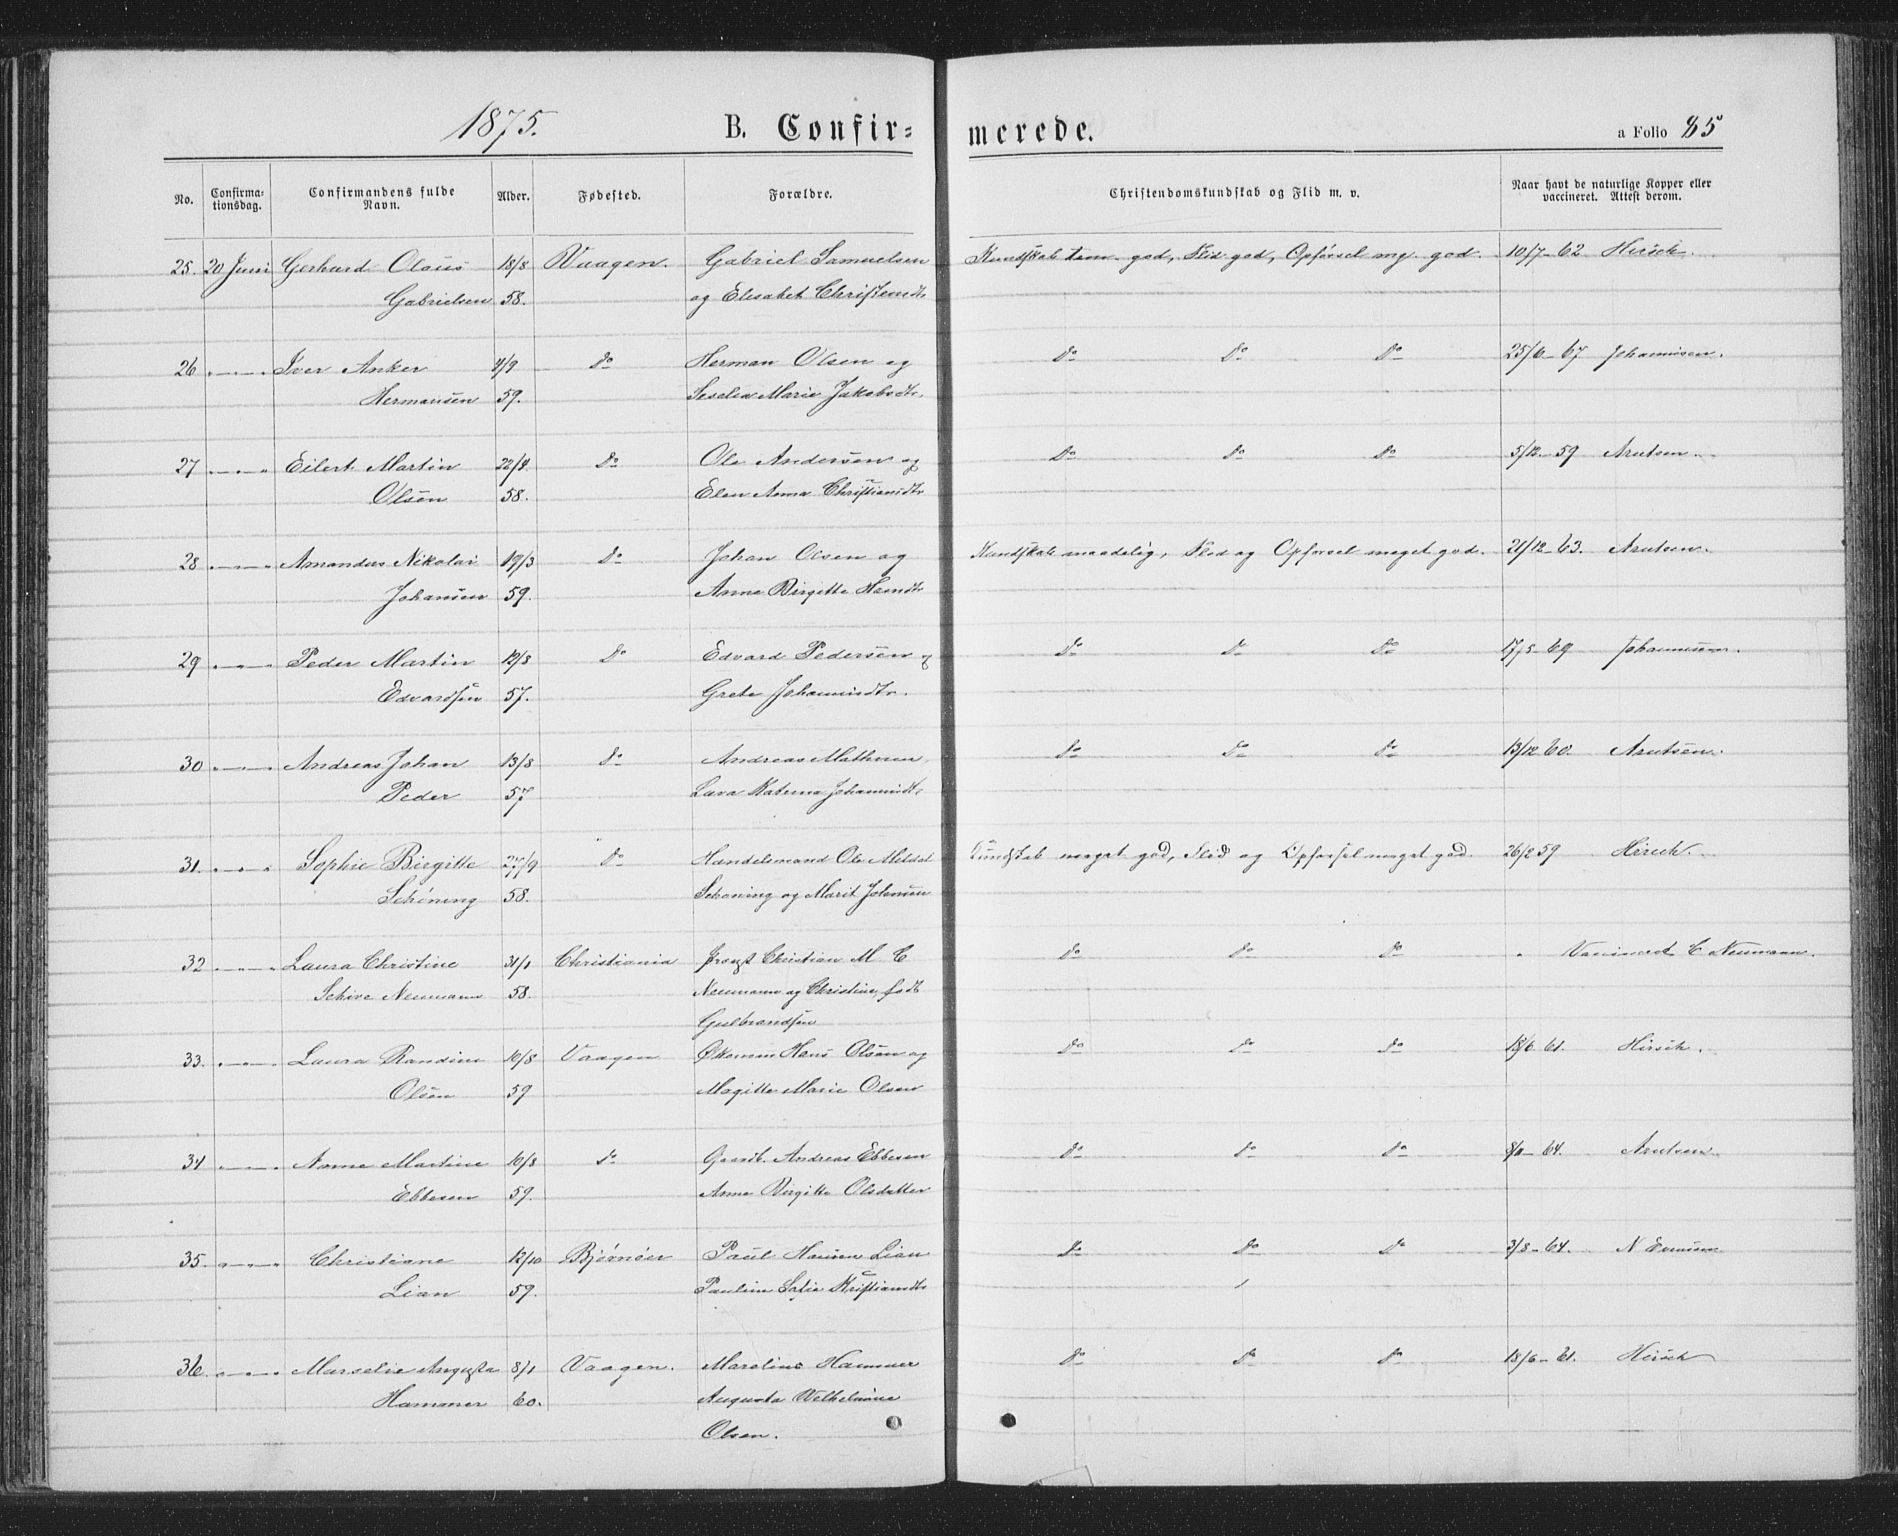 1875. B. Confir= merede. a Folio 85
No. Confirma=tionsdag. Confirmandens fulde Navn. Alder. Fødested. Forældre. Christendomskundskab og Flid m. v. Naar havt de naturlige Kopper eller vaccineret. Attest derom.
25. 20 Juni Gerhard Olaus 18/8 Vaagen. Gabriel Samuelsen Kundskab tem. god, Flid god, Opførsel mg. god. 10/7-62 Hirsch.
Gabrielsen 58. og Elisabet Christensdtr
26 " — " Iver Anker 4/9 Do Herman Olsen og Do Do Do 25/6-67 Johannesen.
Hermansen 59. Seselia Marie Jakobsdtr.
27 " — " Eilert Martin 22/4. Do Ole Andersen og Do Do Do 5/12-59 Arntsen.
Olsen 58. Elen Anna Christiansdtr
28 " — " Amandus Nikolai 19/3 Do Johan Olsen og Kundskab maadelig, Flid og Opførsel meget god. 21/12-63. Arntsen.
Johansen 59. Anne Birgitte Hansdtr
29 " — " Peder Martin 12/8 Do Edvard Pedersen og Do Do Do 17/5-69 Johannesen.
Edvardsen 57. Grete Johannesdtr.
30 " — " Andreas Johan 13/8 Do Andreas Do Do Do 13/12-60. Arntsen.
Peder 57 Katrina
31. " — " Sophie Birgitte 27/9 Do Handelsmand Ole Meldal Kundskab meget god, Flid og Opførsel meget god. 26/8 59 Hirsch.
Schöning 58. Schøning og Marit Johnsen
32 " — " Laura Christine 31/1 Christiania Christian M C Do Do Do " C Neumann.
Schive Neumann 58. Neumann og Christine, født
Gulbrandsen
33. " — " Laura Randine 10/8 Vaagen Hans Olsen og Do Do Do 18/6 61. Hirsch.
Olsen 59 Marie Olsen
34 " — " Anne Martine 10/8 Do Andreas Ebbesen Do Do Do Arntsen.
Ebbesen 59. Anne Birgitte Olsdatter
35. " — " Christiane 12/10 Bjørnøer Paul Hansen Lian Do Do Do 3/8-64. N
Lian 59. Pauline Kristiansdtr
36. " — " Marselie Augusta 8/1 Vaagen. Hammer Do Do Do 18/6-61. Hirsch
Hammer 60. Augusta Wilhelmine
Olsen.